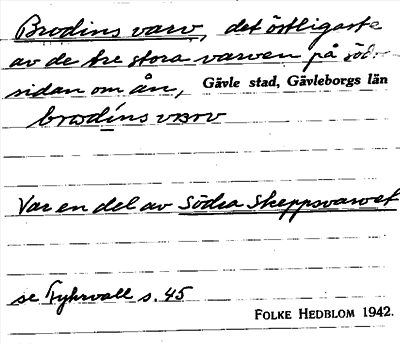 Brodins varv, det östligaste
av de tre stora varven på söd-
sidan om ån, Gävle stad, Gävleborgs län
brodíns varv
Var en del av Södra Skeppsvarvet
se Fyhrvall s. 45
FOLKE HEDBLOM 1942.